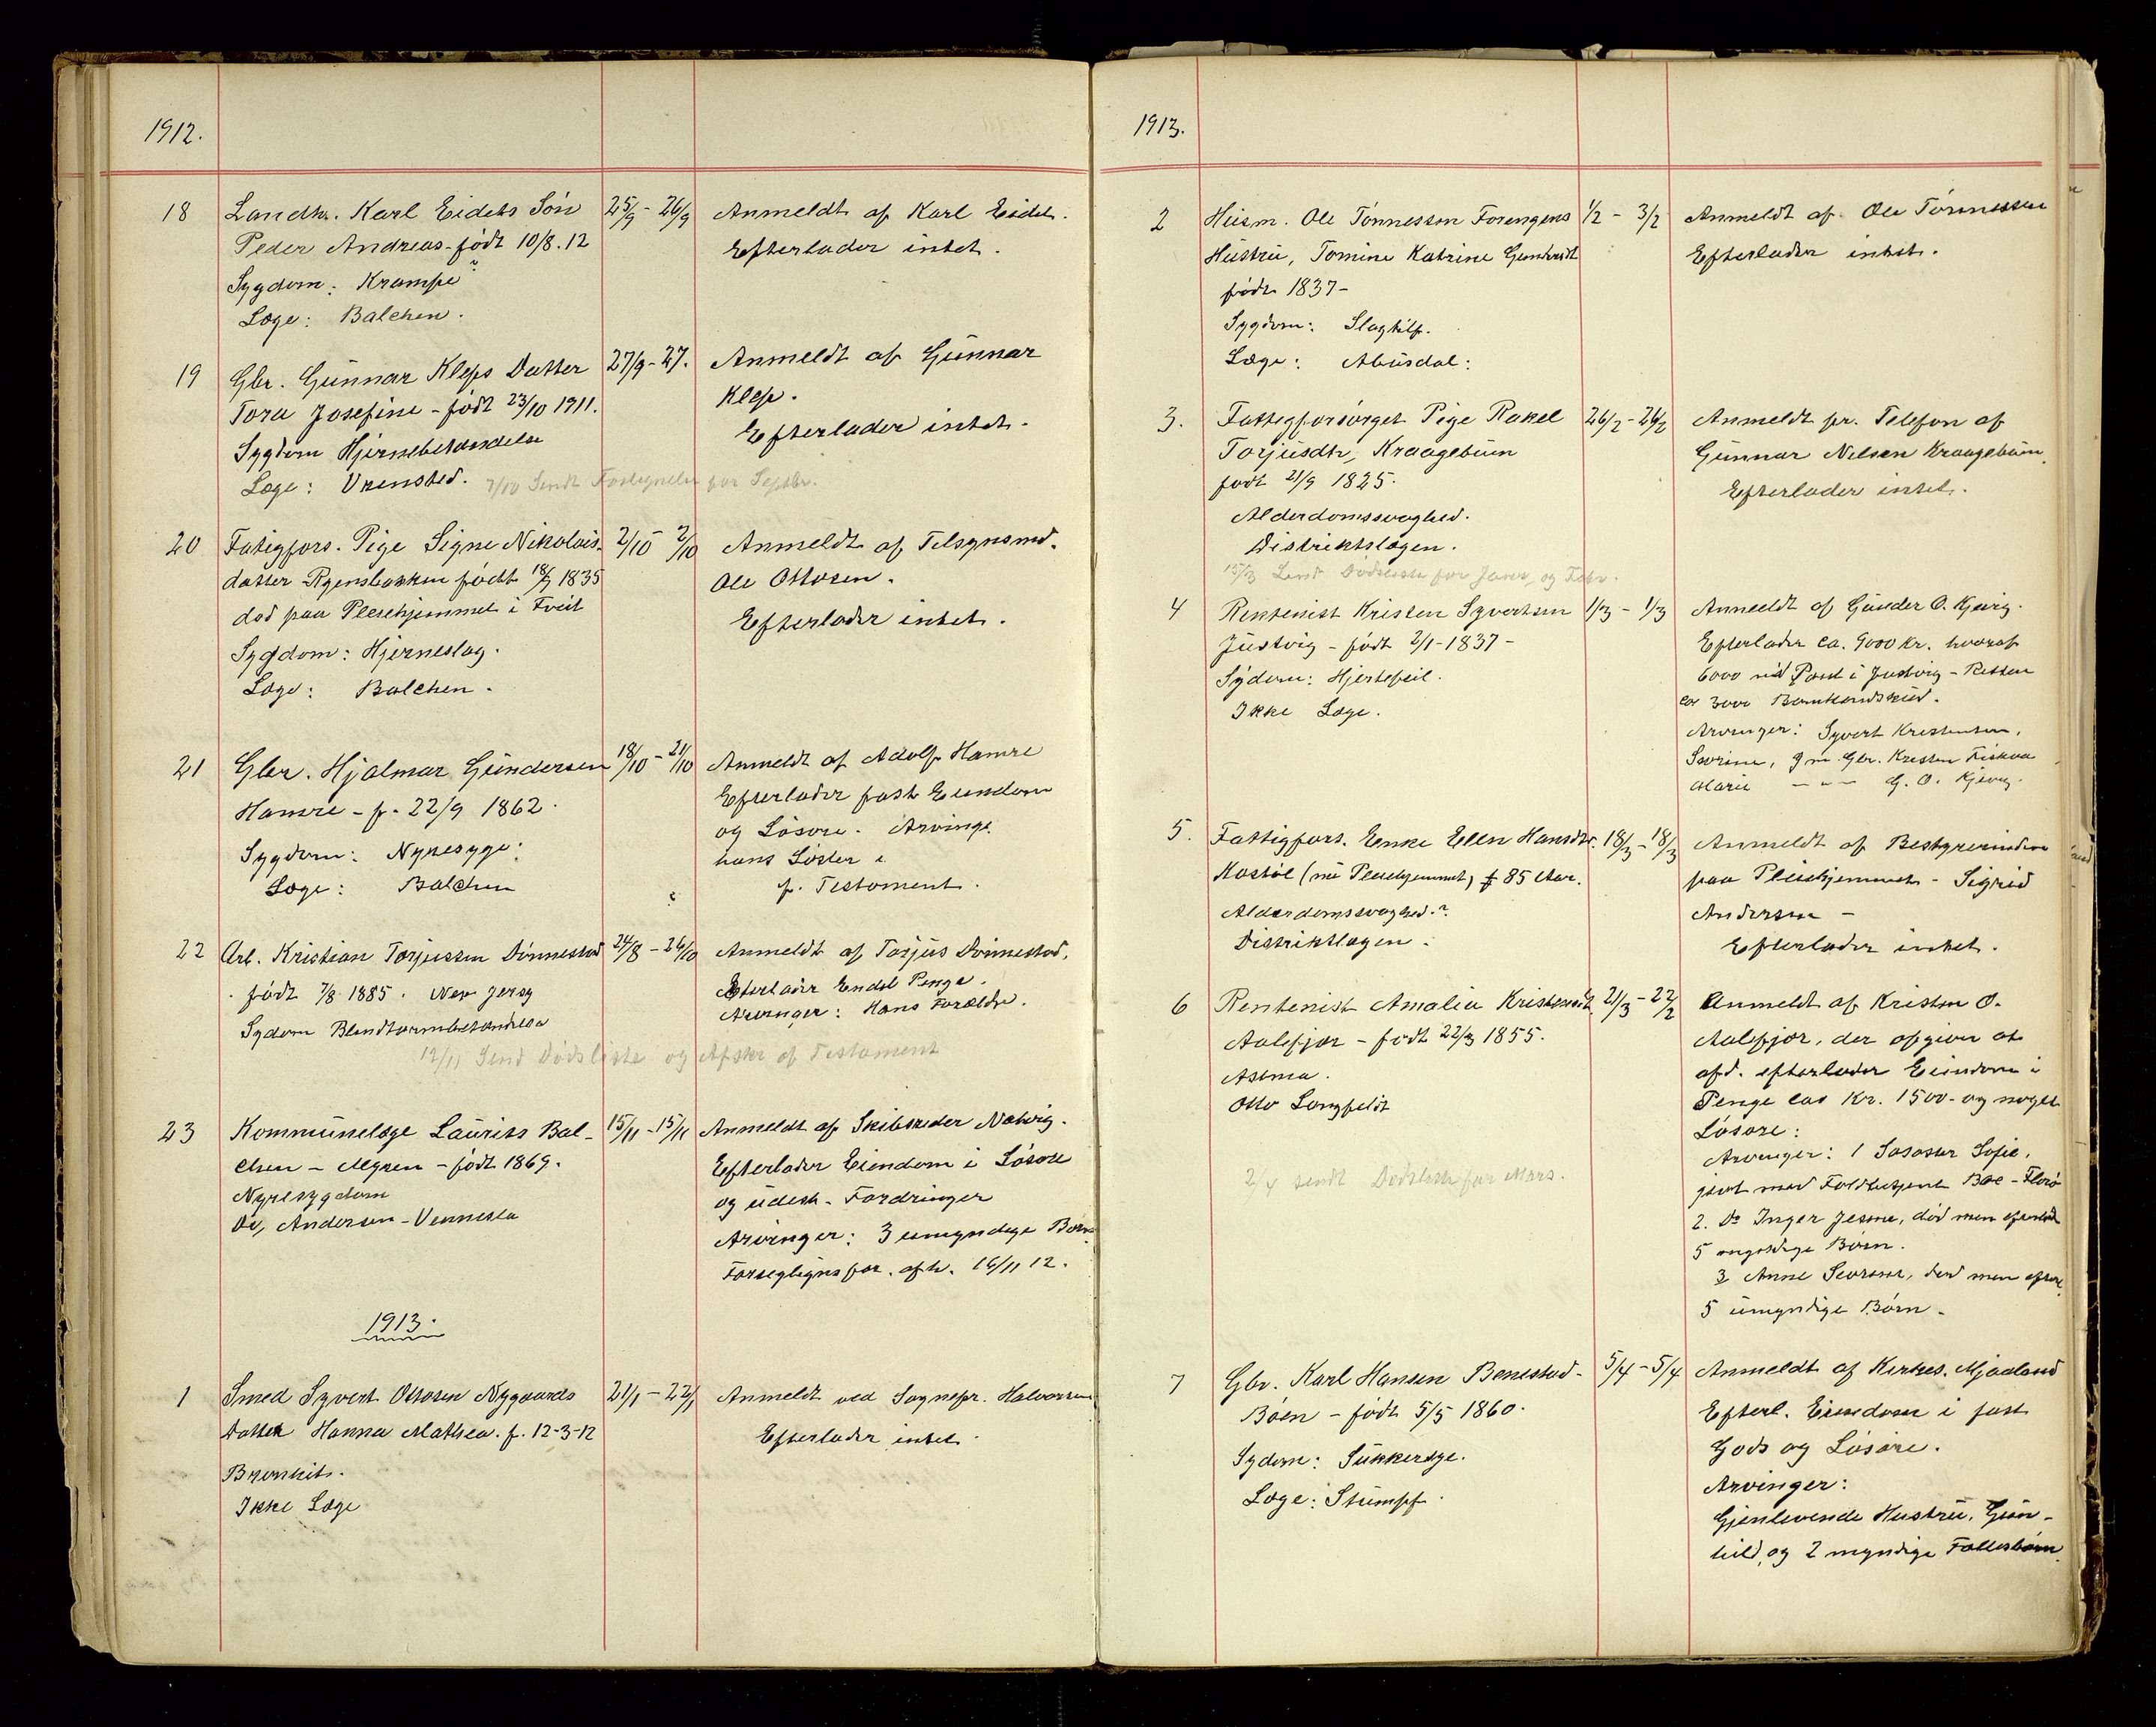 1912.
18 Landhr. Karl Eidets Søn 25/9 - 26/9 Anmeldt af Karl Eidet.
Peder Andreas - født 10/8.12 Efterlader intet.
Sygdom: Krampe?
Læge: Balchen.
19 Gbr. Gunnar Kleps Datter 27/9 - 27. Anmeldt af Gunnar
Tora Josefine - født 23/10 1911. Klep.
Sygdom Hjernebetændelse Efterlader intet.
Læge: Vrensted. 7/10 Sendt Fortegnelse for Septbr.
20 Fatigfors. Pige Signe Nikolais- 2/10 - 2/10 Anmeldt af Tilsynsmd.
datter Ryensbakken født 18/7 1835 Ole Ottosen.
død paa Pleiehjemmet i Tveit Efterlader intet.
Sygdom: Hjerneslag.
Læge: Balchen.
21 Gbr. Hjalmar Gundersen 18/10 - 21/10 Anmeldt af Adolf Hamre
Hamre - f. 22/9 1862. Efterlader fast Eiendom
Sygdom: Nyresyge. og Løsøre. Arvinge
Læge: Balchen hans Søster
f. Testament.
22 Arb. Kristian Torjussen Dønnestad 24/8 - 26/10 Anmeldt af Torjus Dønnestad.
født 7/8 1885. New Jersy Efterlader Endel Penge.
Sydom Blindtarmbetændelse Arvinger: Hans Forældre.
12/11 Send Dødsliste og Afskr af Testament
23 Kommunelæge Laurits Bal- 15/11 - 15/11 Anmeldt af Skibsreder Natvig.
chen - Mygren - født 1869. Efterlader Eiendom i Løsøre
Nyresygdom og udest. Fordringer
Dr, Andersen - Vennesla Arvinger: 3 umyndige Børn
Forseglignsfor. afh. 16/11 12.
1913.
1 Smed Syvert Ottosen Nygaards 21/1 - 22/1 Anmeldt ved Sognepr. Halvorsen
Datter Hanna Mathea. f. 12-3-12 Efterlader intet
Bronkit.
Ikke Læge
1913.
2 Husm. Ole Tønnessen Forengens 1/2 - 3/2 Anmeldt af Ole Tønnessen
Hustru, Tomine Katrine Efterlader intet.
født 1837-
Sygdom: Slagtilf.
Læge: Abusdal:
3. Fattigforsørget Pige Rakel 26/2 - 26/2 Anmeldt pr. Telefon af
Torjusdtr, Kraagebuen Gunnar Nilsen Kraagebuen
født 21/9 1825. Efterlader intet.
Alderdomssvaghed.
Distriktslægen.
15/3 Send Dødsliste for Janr, og Febr.
4 Rentenist Kristen Syvertsen 1/3 - 1/3 Anmeldt af Gunder O. Kjevig.
Justvig - født 2/1-1837- Efterlader ca. 9000 kr. hvoraf
Sydom: Hjertefeil. 6000 ved Pant i Justvig - Resten
Ikke Læge. ca 3000 Bankindskud.
Arvinger: Syvert Kristensen,
Severine, g m Gbr. Kristen Fiskaa
Marie - " - G. O. Kjevig.
5. Fattigfors. Enke Ellen Hansdtr. 18/3 - 18/3 Anmeldt af Bestyrerinden
Kostøl (nu Pleiehjemmet) f 85 Aar. paa Pleiehjemmet - Sigrid
Alderdomssvaghed.? Andersen -
Distriktlægen. Efterlader intet.
6 Rentenist Amalia Kristensdt. 21/3 - 22/2 Anmeldt af Kristen O.
Aalefjær - født 22/3 1855. Aalefjær, der opgiver at
Astma. afd. efterlader Eiendom i
Otto Langfeldt Penge ca Kr. 1500- og noget
Løsøre:
Arvinger: 1 Søster Sofie,
givt med Boe - Florø
2/4 sendt Dødsliste for Mars.
2. Do Inger død men
5 Børn.
3 Anne død men
5 umyndige Børn -
7 Gbr. Karl Hansen Benestad - 5/4 - 5/4 Anmeldt af Kirkes. Mjaaland
Bøen - født 5/5 1860. Efterl. Eiendom i fast
Sydom: Sukkersyge. Gods og Løsøre.
Læge: Stumpf. Arvinger:
Gjenlevende Hustru, Gun-
hild, og 2 myndige Fællesbørn